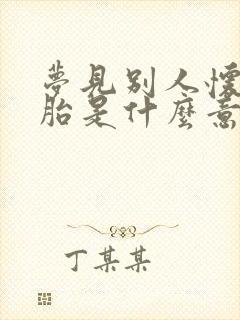 夢見別人懷
胎是什麼意
丁某某